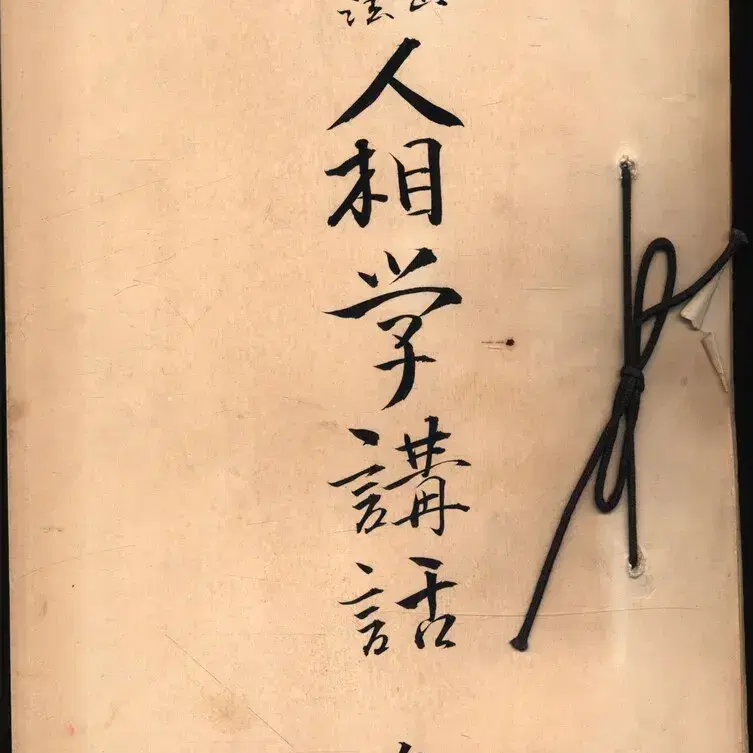 人相学講話